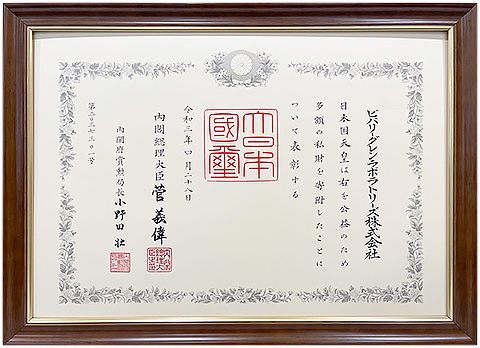 ビバリーグレンラボラトリーズ株式会社
日本国天皇は右を公益のため
多額の私財を寄附したことに
ついて表彰する
大日本
國璽
令和三年四月二十八日
内閣総理大臣 菅義偉
内閣府賞勲局長 小野田壮